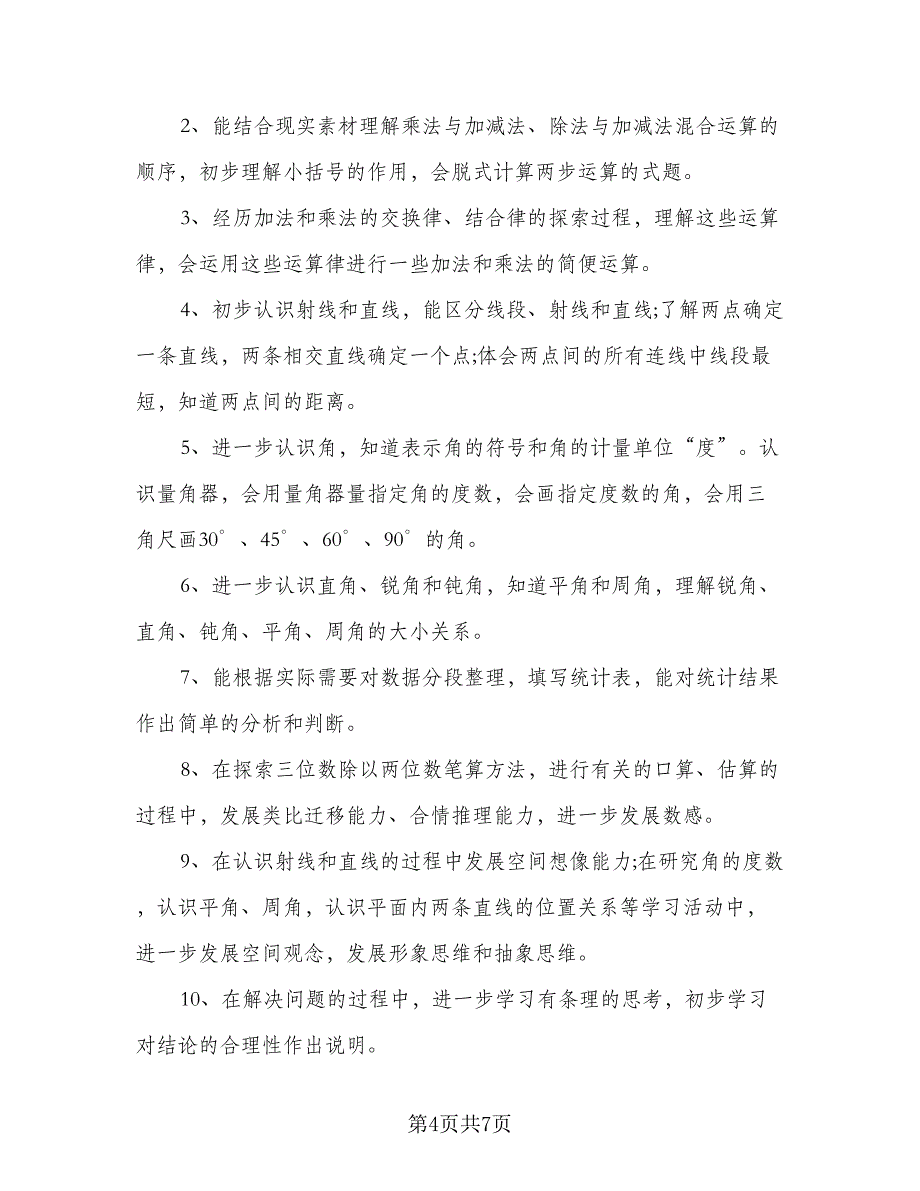 2、能结合现实素材理解乘法与加减法、除法与加减法混合运算的
顺序，初步理解小括号的作用，会脱式计算两步运算的式题。
3、经历加法和乘法的交换律、结合律的探索过程，理解这些运算
律，会运用这些运算律进行一些加法和乘法的简便运算。
4、初步认识射线和直线，能区分线段、射线和直线;了解两点确定
一条直线，两条相交直线确定一个点;体会两点间的所有连线中线段最
短，知道两点间的距离。
5、进一步认识角，知道表示角的符号和角的计量单位“度”。认
识量角器，会用量角器量指定角的度数，会画指定度数的角，会用三
角尺画30°、45°、60°、90°的角。
6、进一步认识直角、锐角和钝角，知道平角和周角，理解锐角、
直角、钝角、平角、周角的大小关系。
7、能根据实际需要对数据分段整理，填写统计表，能对统计结果
作出简单的分析和判断。
8、在探索三位数除以两位数笔算方法，进行有关的口算、估算的
过程中，发展类比迁移能力、合情推理能力，进一步发展数感。
9、在认识射线和直线的过程中发展空间想像能力;在研究角的度数
，认识平角、周角，认识平面内两条直线的位置关系等学习活动中，
进一步发展空间观念，发展形象思维和抽象思维。
10、在解决问题的过程中，进一步学习有条理的思考，初步学习
对结论的合理性作出说明。
第4页共7页